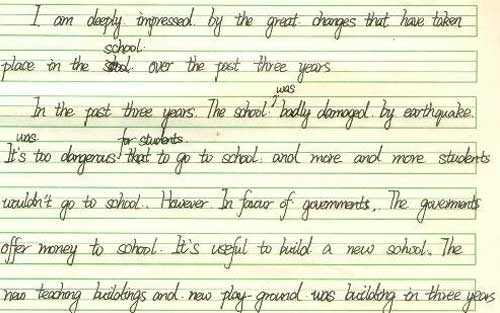 I am deeply impressed by the great changes that have taken
school.
place in the over the past three years
was
In the past three years. The school badly damaged by earthquake.
was for students
It's too dangerous that to go to school and more and more students
wouldn't go to school. However In favor of governments,. The goverments
offer money to school. It's useful to build a new school. The
new teaching buildings and new play-ground was building in three years